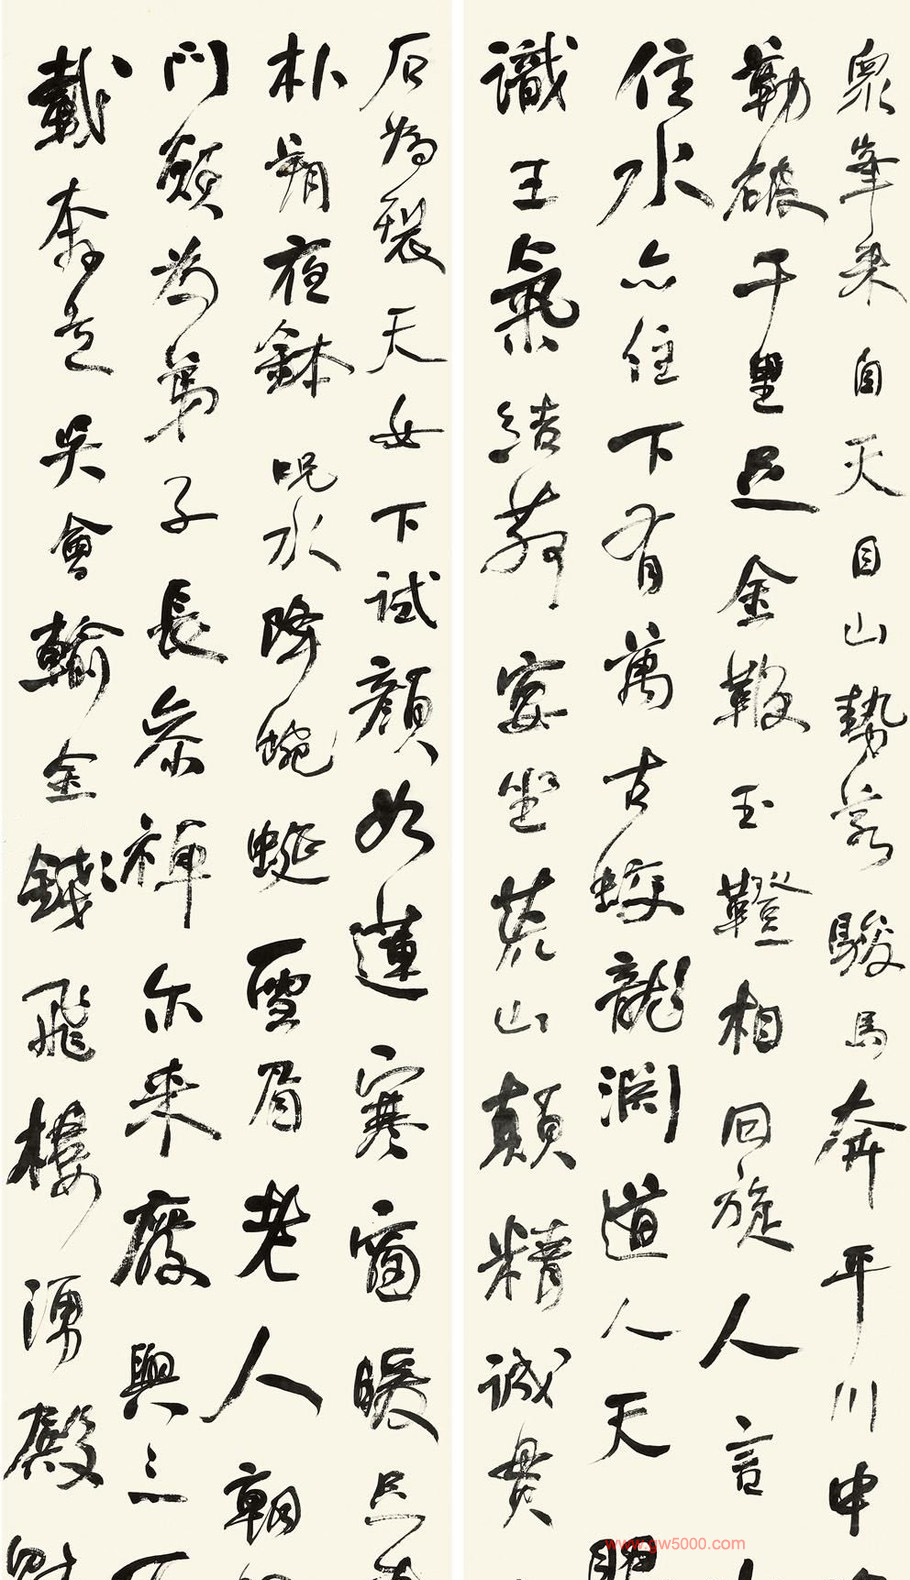 眾峯来自天目山勢若駿馬奔平川中
勒破千里足金鞭玉鐙相回旋人言
住水亦住下有萬古蛟龍淵道人天眼
識王氣結茅宴坐荒山顛精誠貫
石為裂天女下試顏如蓮寒窗暖足
朴朔夜鉢呪水降蜿蜒雪眉老人朝
門願為弟子長參禪尔来廢興三百
載奔走吳會輸金錢飛樓湧殿
www.gw5000.com